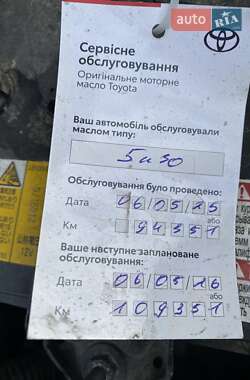 AUTO RIA
Сервісне
обслуговування
Оригінальне моторне
масло Toyota
Ваш автомобіль обслуговували
маслом типу:
5w30
Обслуговування було проведено:
Дата 06/05/25
або
Км 94351
Ваше наступне заплановане
обслуговування:
Дата 06/05/26
або
Км 109351